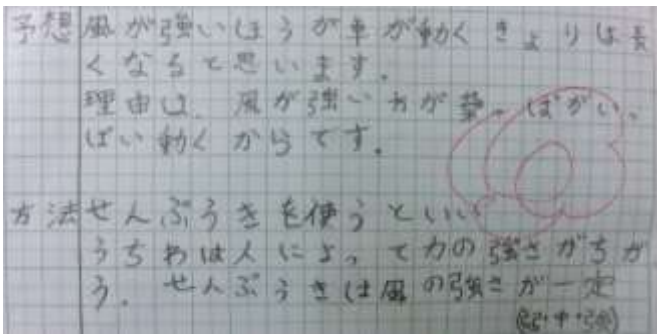 予想 風が強いほうが車が動くきょりは長
くなると思います。
理由は、風が強い方が葉っぱがいっ
ぱい動くからです。
方法 せんぷうきを使うといい
うちわは人によって力の強さがちが
う。せんぷうきは風の強さが一定
(弱・中・強)